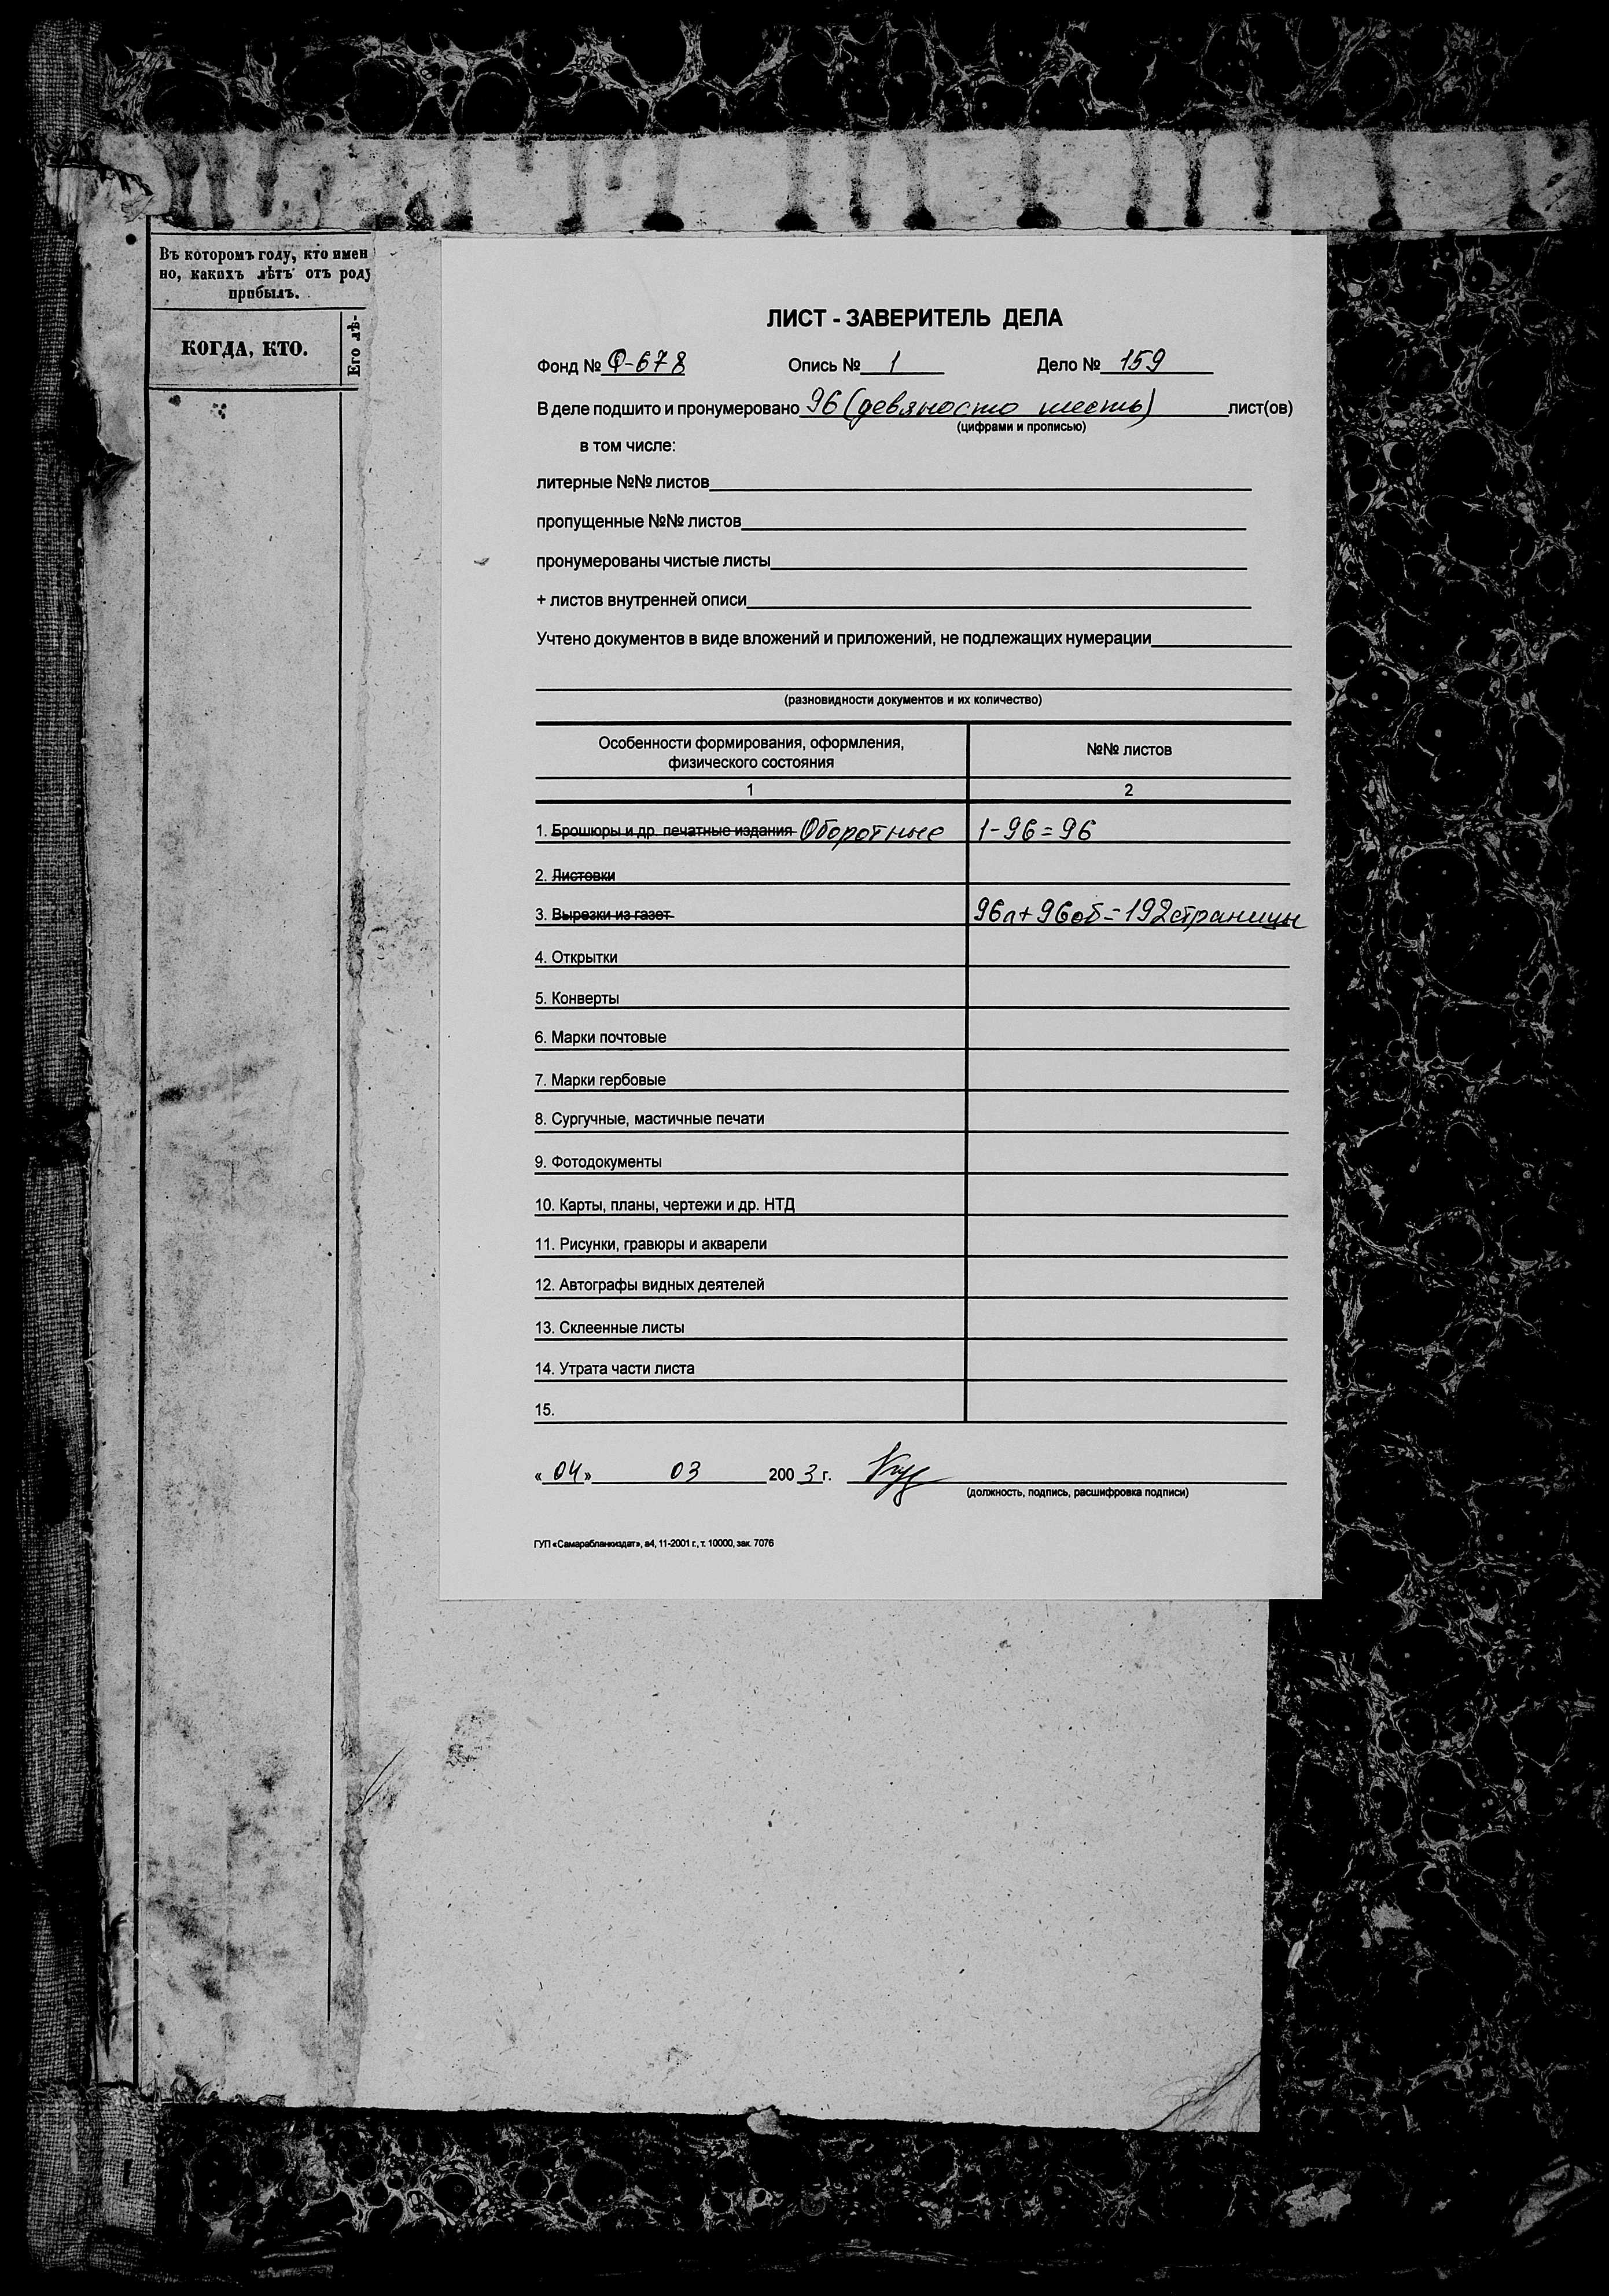 Въ которомъ году, кто имен
но, какихъ лѣтъ отъ роду
прибылъ.
КОГДА, КТО.
Его лѣ-
ЛИСТ - ЗАВЕРИТЕЛЬ ДЕЛА
Фонд № Ф-678 Опись № 1 Дело № 159
В деле подшито и пронумеровано 96 (девяносто шесть) лист(ов)
(цифрами и прописью)
в том числе:
литерные №№ листов
пропущенные №№ листов
пронумерованы чистые листы
+ листов внутренней описи
Учтено документов в виде вложений и приложений, не подлежащих нумерации
(разновидности документов и их количество)
Особенности формирования, оформления,
физического состояния
№№ листов
1 2
1. Брошюры и др. печатные издания Оборотные 1-96=96
2. Листовки
3. Вырезки из газет 96л+96об=192страницы
4. Открытки
5. Конверты
6. Марки почтовые
7. Марки гербовые
8. Сургучные, мастичные печати
9. Фотодокументы
10. Карты, планы, чертежи и др. НТД
11. Рисунки, гравюры и акварели
12. Автографы видных деятелей
13. Склеенные листы
14. Утрата части листа
15.
«04» 03 2003 г.
(должность, подпись, расшифровка подписи)
ГУП «Самарабланкиздат», а4, 11-2001 г., т. 10000, зак. 7076